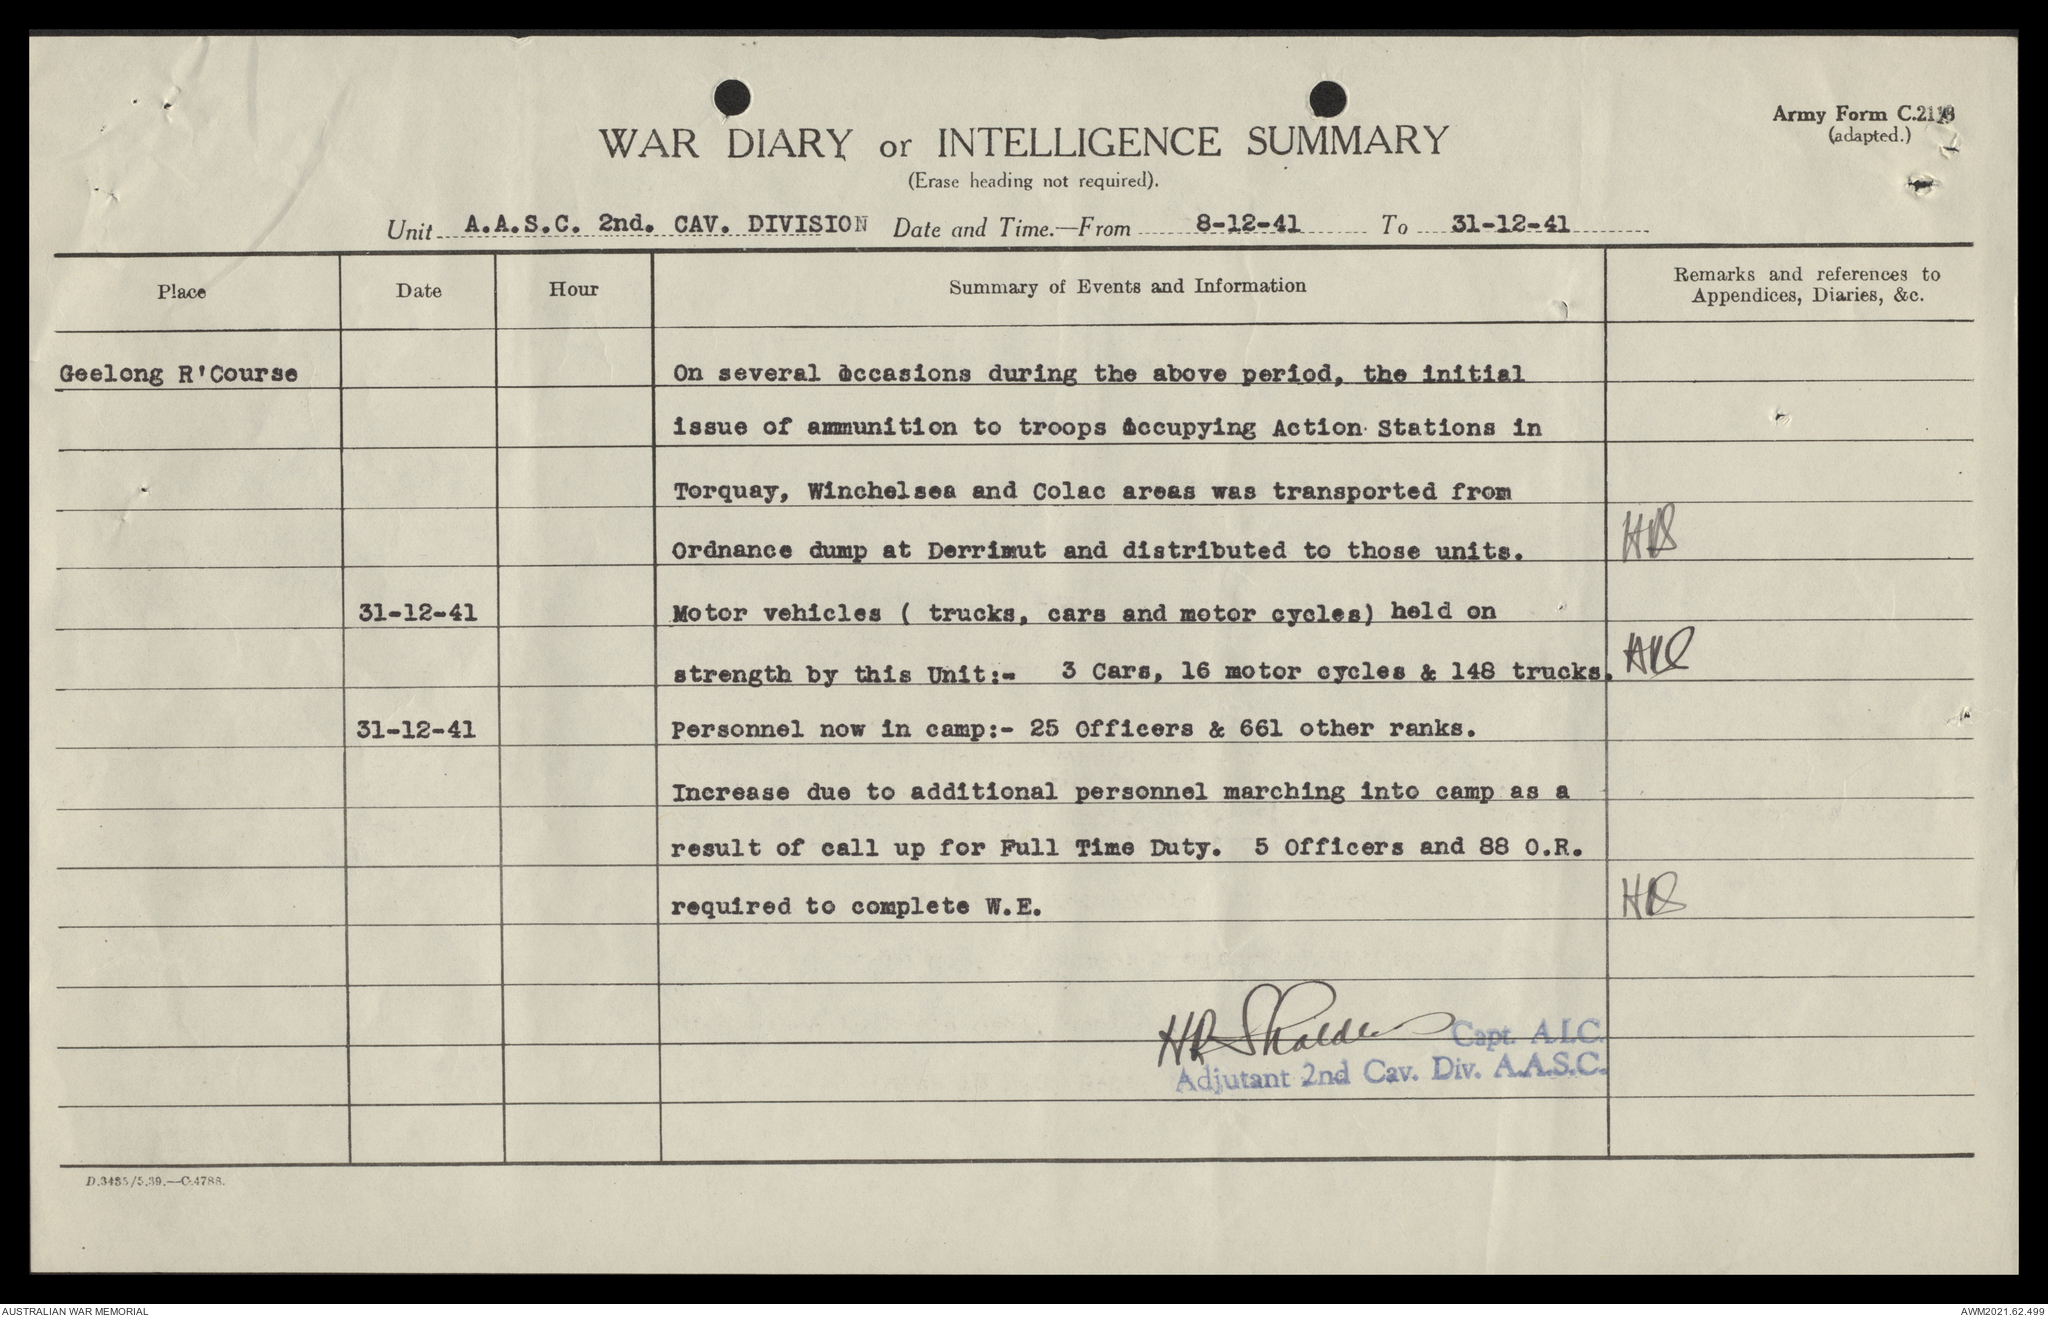 Army Form C.2118
(adapted.)
WAR DIARY or INTELLIGENCE SUMMARY
(Erase heading not required).
Unit A.A.S.C. 2nd. CAV. DIVISION Date and Time.—From 8-12-41 To 31-12-41
Place Date Hour Summary of Events and Information Remarks and references to
Appendices, Diaries, &c.
Geelong R'Course On several occasions during the above period, the initial
issue of ammunition to troops occupying Action Stations in
Torquay, Winchelsea and Colac areas was transported from
Ordnance dump at Derrimut and distributed to those units.
31-12-41 Motor vehicles ( trucks, cars and motor cycles) held on
strength by this Unit:- 3 Cars, 16 motor cycles & 148 trucks.
31-12-41 Personnel now in camp:- 25 Officers & 661 other ranks.
Increase due to additional personnel marching into camp as a
result of call up for Full Time Duty. 5 Officers and 88 O.R.
required to complete W.E.
Capt. A.I.C.
Adjutant 2nd Cav. Div. A.A.S.C.
D.3485/5.39.—C.4788.
AUSTRALIAN WAR MEMORIAL
AWM2021.62.499